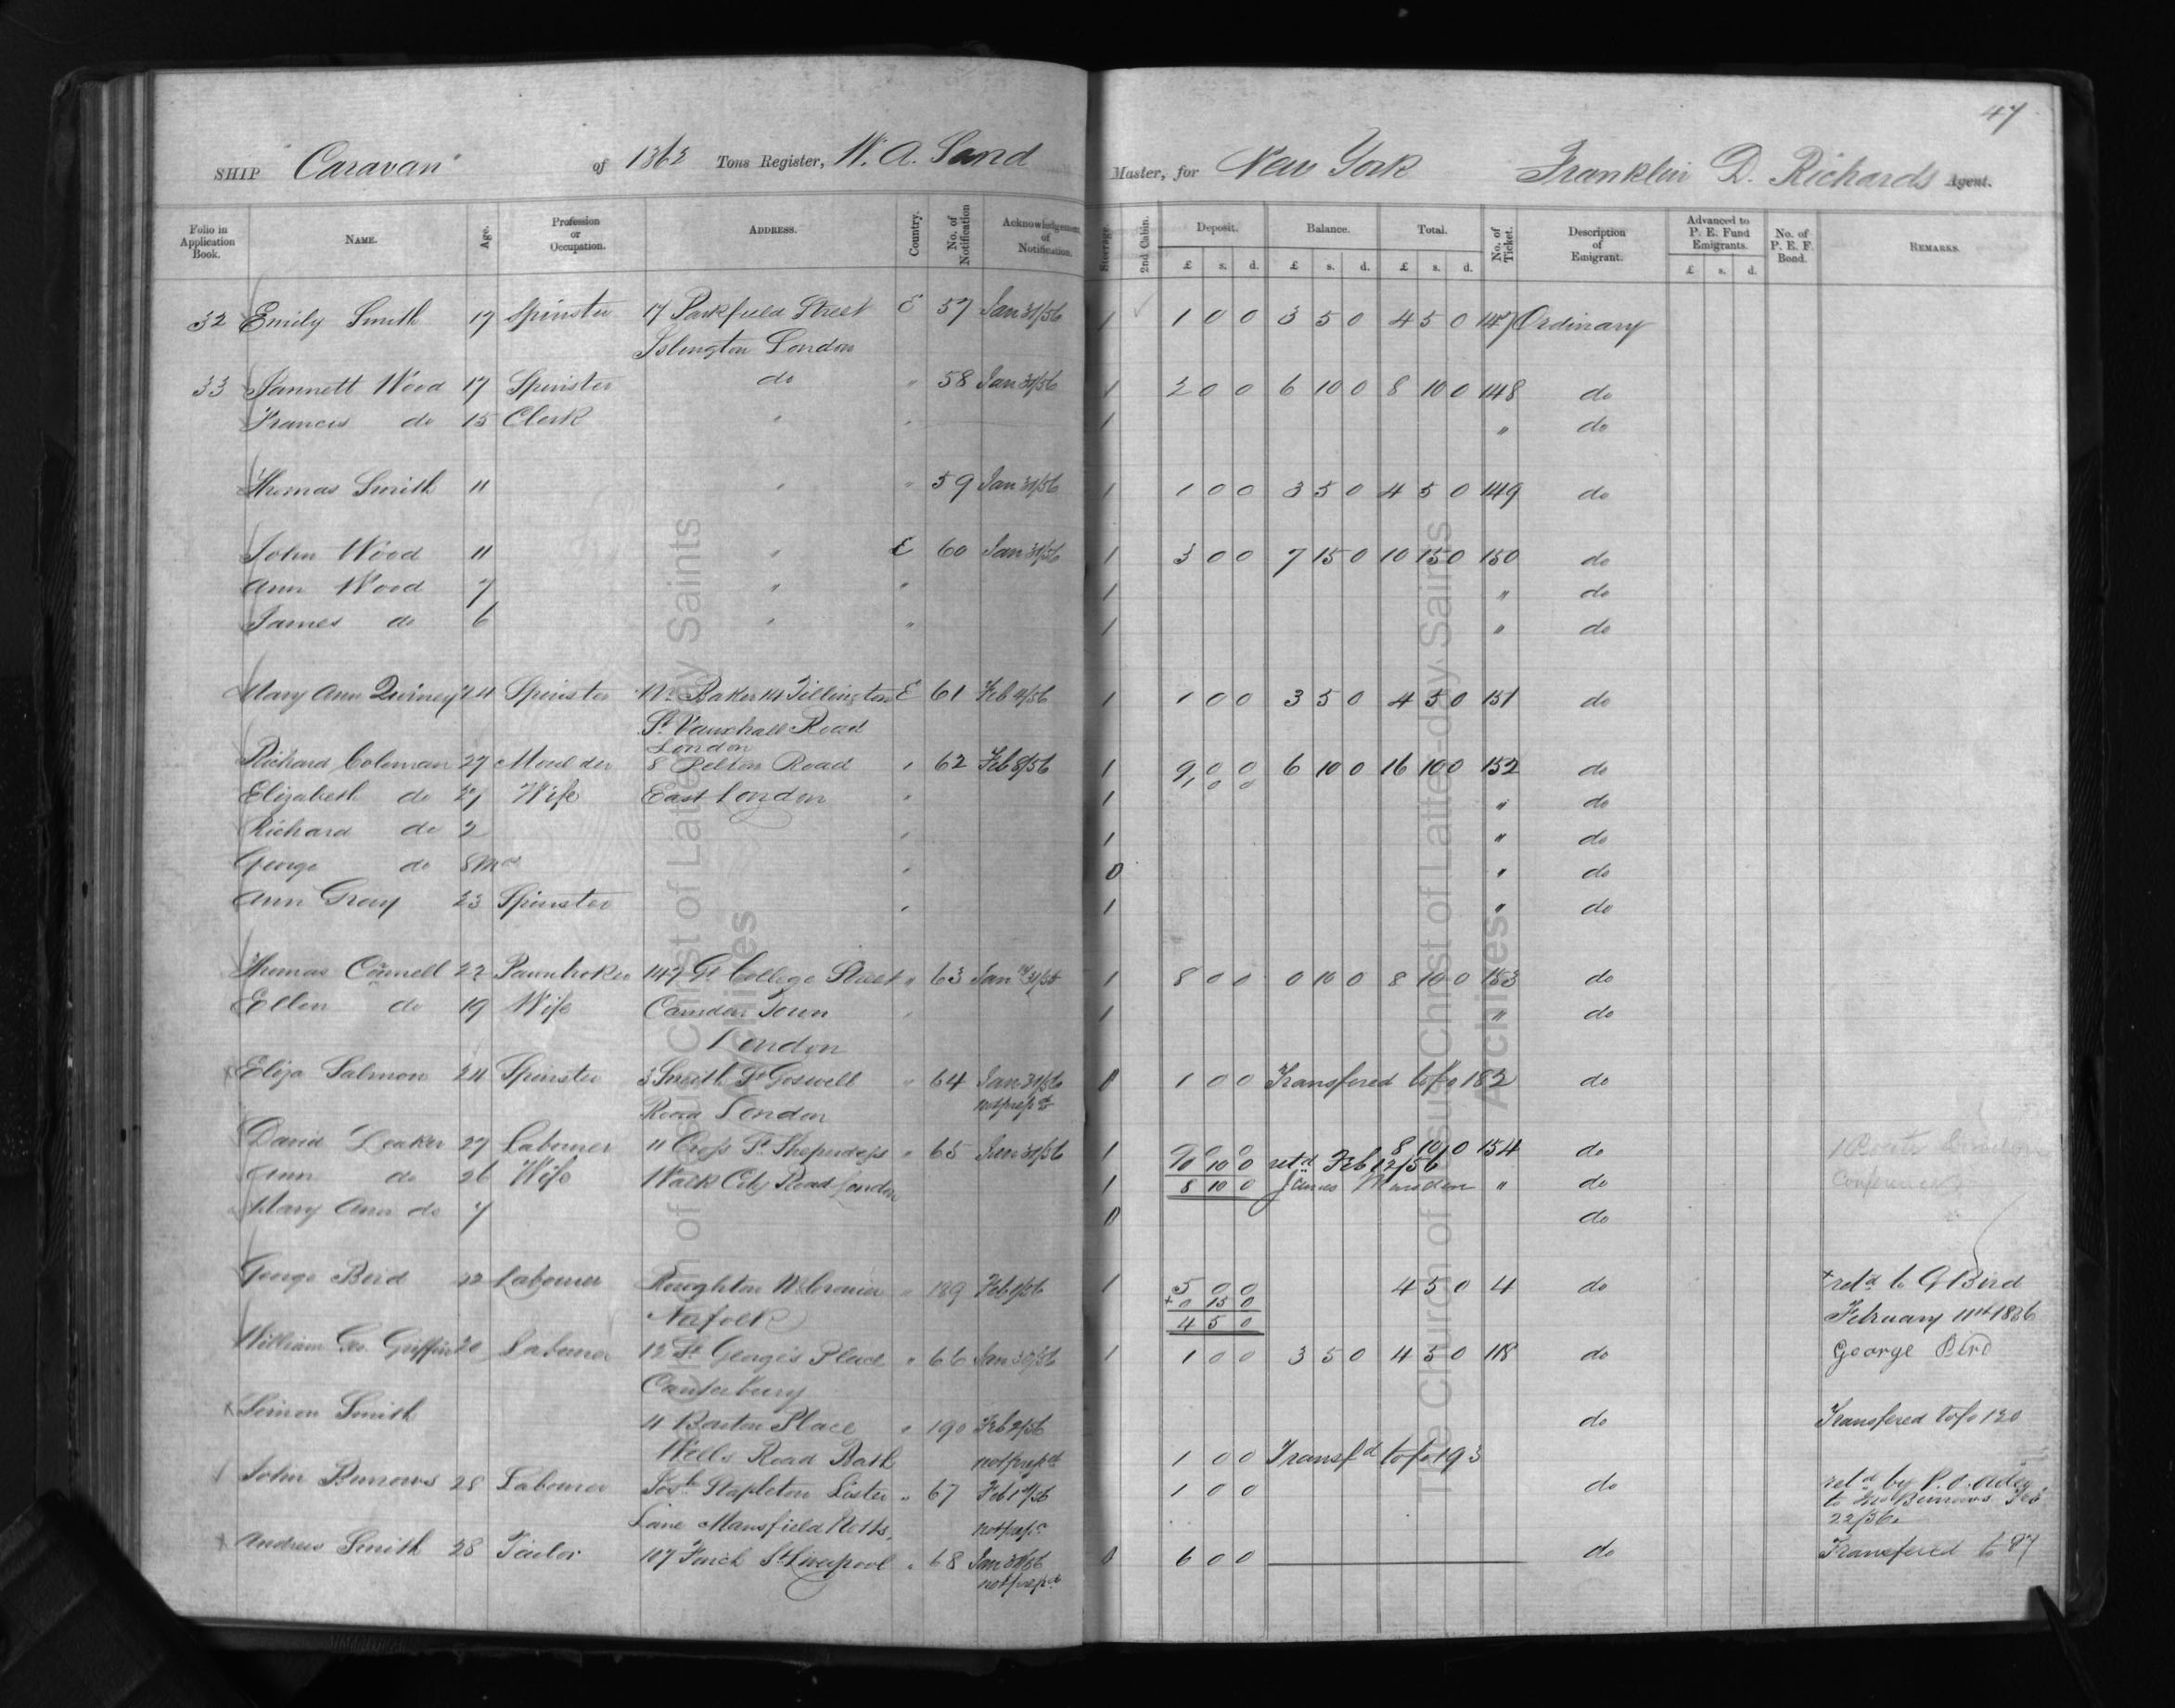 47
SHIP "Caravan" of 1362 Tons Register, W. A. Sand Master, for New York Franklin D. Richards Agent.
Folio in Application Book. NAME. Age. Profession or Occupation. ADDRESS. Country. No. of Notification Acknowledgement of Notification. Steerage 2nd Cabin. Deposit. £ s. d. Balance. £ s. d. Total. £ s. d. No. of Ticket. Description of Emigrant. Advanced to P. E. Fund Emigrants. £ s. d. No. of P. E. F. Bond. REMARKS.
32 Emily Smith 17 Spinster 17 Parkfield Street E 57 Jan 31/56 1 1 0 0 3 5 0 4 5 0 147 Ordinary
Islington London
33 Jannett Wood 17 Spinster do " 58 Jan 31/56 1 2 0 0 6 10 0 8 10 0 148 do
Francis do 15 Clerk " " 1 " do
Thomas Smith 11 " " 59 Jan 31/56 1 1 0 0 3 5 0 4 5 0 149 do
John Wood 11 " E 60 Jan 31/56 1 3 0 0 7 15 0 10 15 0 150 do
Ann Wood 7 " " 1 " do
James do 6 " " 1 " do
Mary Ann Quiney 24 Spinster Mr Baker 14 Tillington E 61 Feb 4/56 1 1 0 0 3 5 0 4 5 0 151 do
St Vauxhall Road
London
Richard Coleman 27 Moulder 8 Pelton Road " 62 Feb 8/56 1 9 0 0 6 10 0 16 10 0 152 do
1 0 0
Elizabeth do 21 Wife East London " 1 " do
Richard do 2 " 1 " do
George do 8 Mos " 0 " do
Ann Gray 23 Spinster " 1 " do
Thomas Connell 22 Pawnbroker 147 Gt College Street " 63 Jan 31/56 1 8 0 0 0 10 0 8 10 0 153 do
Ellen do 19 Wife Camden Town " 1 " do
London
Eliza Salmon 24 Spinster 3 Smith St Goswell " 64 Jan 31/56 0 1 0 0 Transfered to fo 182 do
Road London not prepd
David Leaker 27 Labourer 11 Cross St Shepherdess " 65 Jan 31/56 1 9 0 0 8 10 0 154 do
10 10 0 retd Feb 12/56
Ann do 26 Wife Walk City Road London 1 8 10 0 James Marsden " do Conference
Mary Ann do 7 0 do
George Bird 22 Labourer Roughton N. Cromer " 189 Feb 1/56 1 5 0 0 4 5 0 4 do + retd to G Bird
Norfolk + 0 15 0 February 11th 1856
4 5 0
William Geo. Griffin 20 Labourer 12 St George's Place " 66 Jan 30/56 1 1 0 0 3 5 0 4 5 0 118 do George Bird
Canterbury
x Simon Smith 4 Barton Place " 190 Feb 2/56 do Transfered to fo 120
Wells Road Bath not prepd 1 0 0 Transfd to fo 193
John Burrows 28 Labourer Josh Stapleton Lister " 67 Feb 1st/56 1 0 0 do retd by P. O. Order
Lane Mansfield Notts, not prepd to Jno Burrows Feb
22/56.
x Andrew Smith 28 Tailor 107 Finch St Liverpool " 68 Jan 30/56 0 6 0 0 do Transfered to 87
not prepd